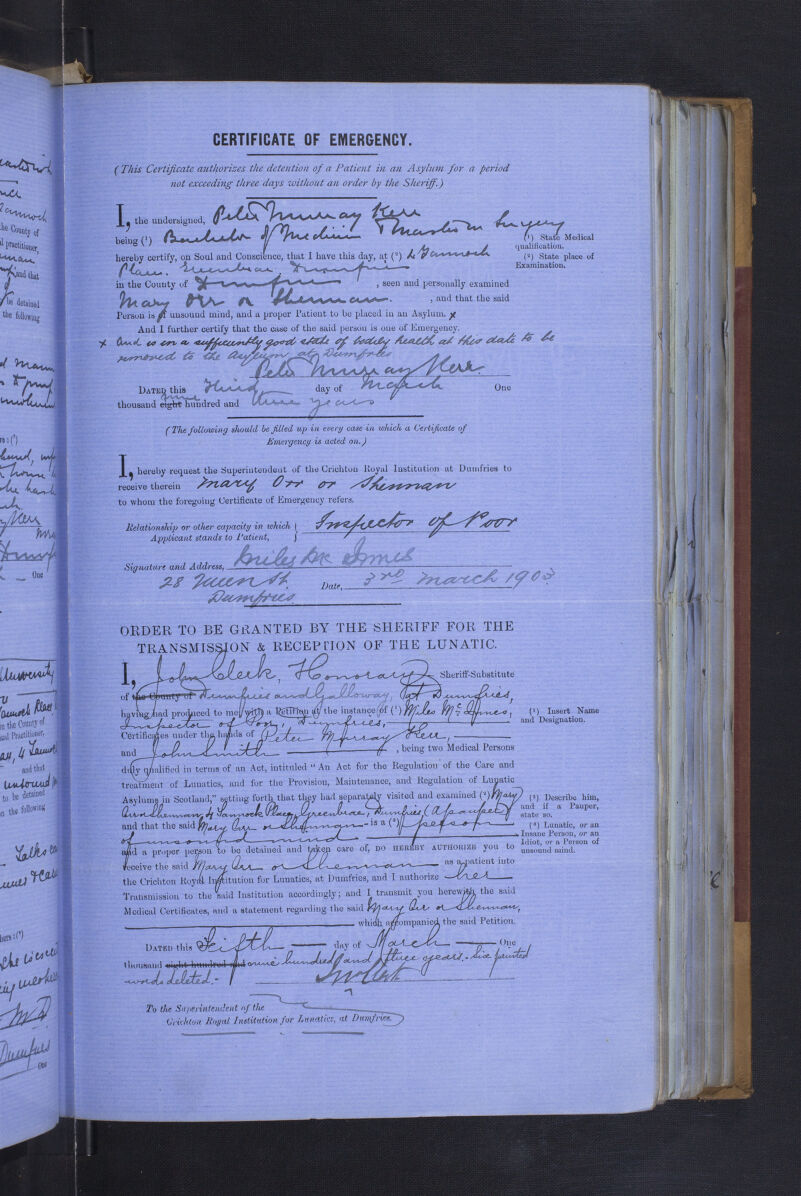 CERTIFICATE OF EMERGENCY.
(This Certificate authorizes the detention of a Patient in an Asylum for a period
not exceeding three days without an order by the Sheriff.)
I, the undersigned, Peter Murray Kerr
being (¹) Bachelor of Medicine & Master in Surgery
(¹) State Medical
qualification.
hereby certify, on Soul and Conscience, that I have this day, at (²) 4 Gannoch
(²) State place of
Examination.
Place, Greenbrae, Dumfries
in the County of Dumfries, seen and personally examined
Mary Orr or Shennan, and that the said
Person is of unsound mind, and a proper Patient to be placed in an Asylum. x
And I further certify that the case of the said person is one of Emergency.
x and is in a sufficiently good state of bodily health at this date to be
removed to the Asylum at Dumfries
Peter Murray Kerr.
DATED this Third day of March One
thousand eight nine hundred and three years
(The following should be filled up in every case in which a Certificate of
Emergency is acted on.)
I, hereby request the Superintendent of the Crichton Royal Institution at Dumfries to
receive therein Mary Orr or Shennan
to whom the foregoing Certificate of Emergency refers.
Relationship or other capacity in which
Applicant stands to Patient, } Inspector of Poor
Signature and Address, Miles Mc Innes
28 Queen St. Date, 3rd March 1903.
Dumfries
ORDER TO BE GRANTED BY THE SHERIFF FOR THE
TRANSMISSION & RECEPTION OF THE LUNATIC.
I, John Clerk, Honorary Sheriff-Substitute
of the County of Dumfries and Galloway, at Dumfries,
having had produced to me, with a Petition at the instance of (¹) Miles McInnes,
(¹) Insert Name
and Designation.
Inspector of Poor, Dumfries,
Certificates under the hands of Peter Murray Kerr,
and John Smith, being two Medical Persons
duly qualified in terms of an Act, intituled "An Act for the Regulation of the Care and
treatment of Lunatics, and for the Provision, Maintenance, and Regulation of Lunatic
Asylums in Scotland," setting forth that they had separately visited and examined (²) Mary
(²) Describe him,
and if a Pauper,
state so.
Orr or Shennan, 4 Gannoch Place, Greenbrae, Dumfries (a pauper)
and that the said Mary Orr or Shennan is a (³) person
(³) Lunatic, or an
Insane Person, or an
Idiot, or a Person of
unsound mind.
of unsound mind
and a proper person to be detained and taken care of, DO HEREBY AUTHORIZE you to
receive the said Mary Orr or Shennan as a patient into
the Crichton Royal Institution for Lunatics, at Dumfries, and I authorize her
Transmission to the said Institution accordingly; and I transmit you herewith the said
Medical Certificates, and a statement regarding the said Mary Orr or Shennan,
which accompanied the said Petition.
DATED this Fifth day of March One
thousand eight hundred and nine hundred and three years. - Six printed
words deleted. -
Jno Clerk
To the Superintendent of the
Crichton Royal Institution for Lunatics, at Dumfries.